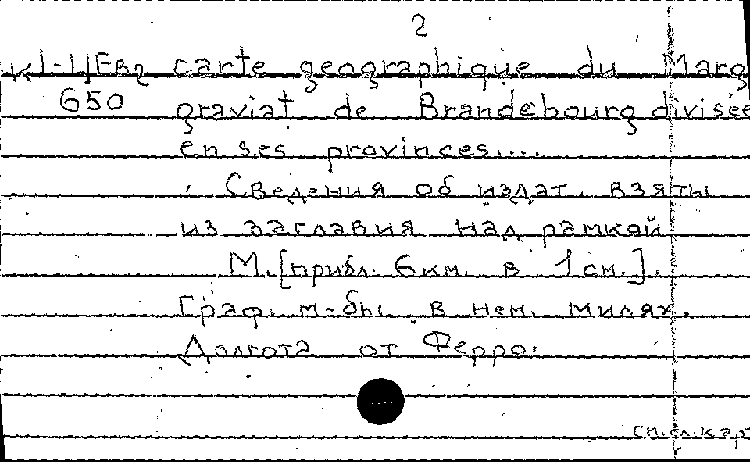 2
К1-ЦЕв2 carte geographique du Marg
650 graviat de Brandebourg divisée
en ses provinces....
Сведения об издат. взяты
из заглавия над рамкой
М.[прибл. 6 км. в 1 см.].
Граф. м-бы в нем. милях.
Долгота от Ферро.
см. сл. кар